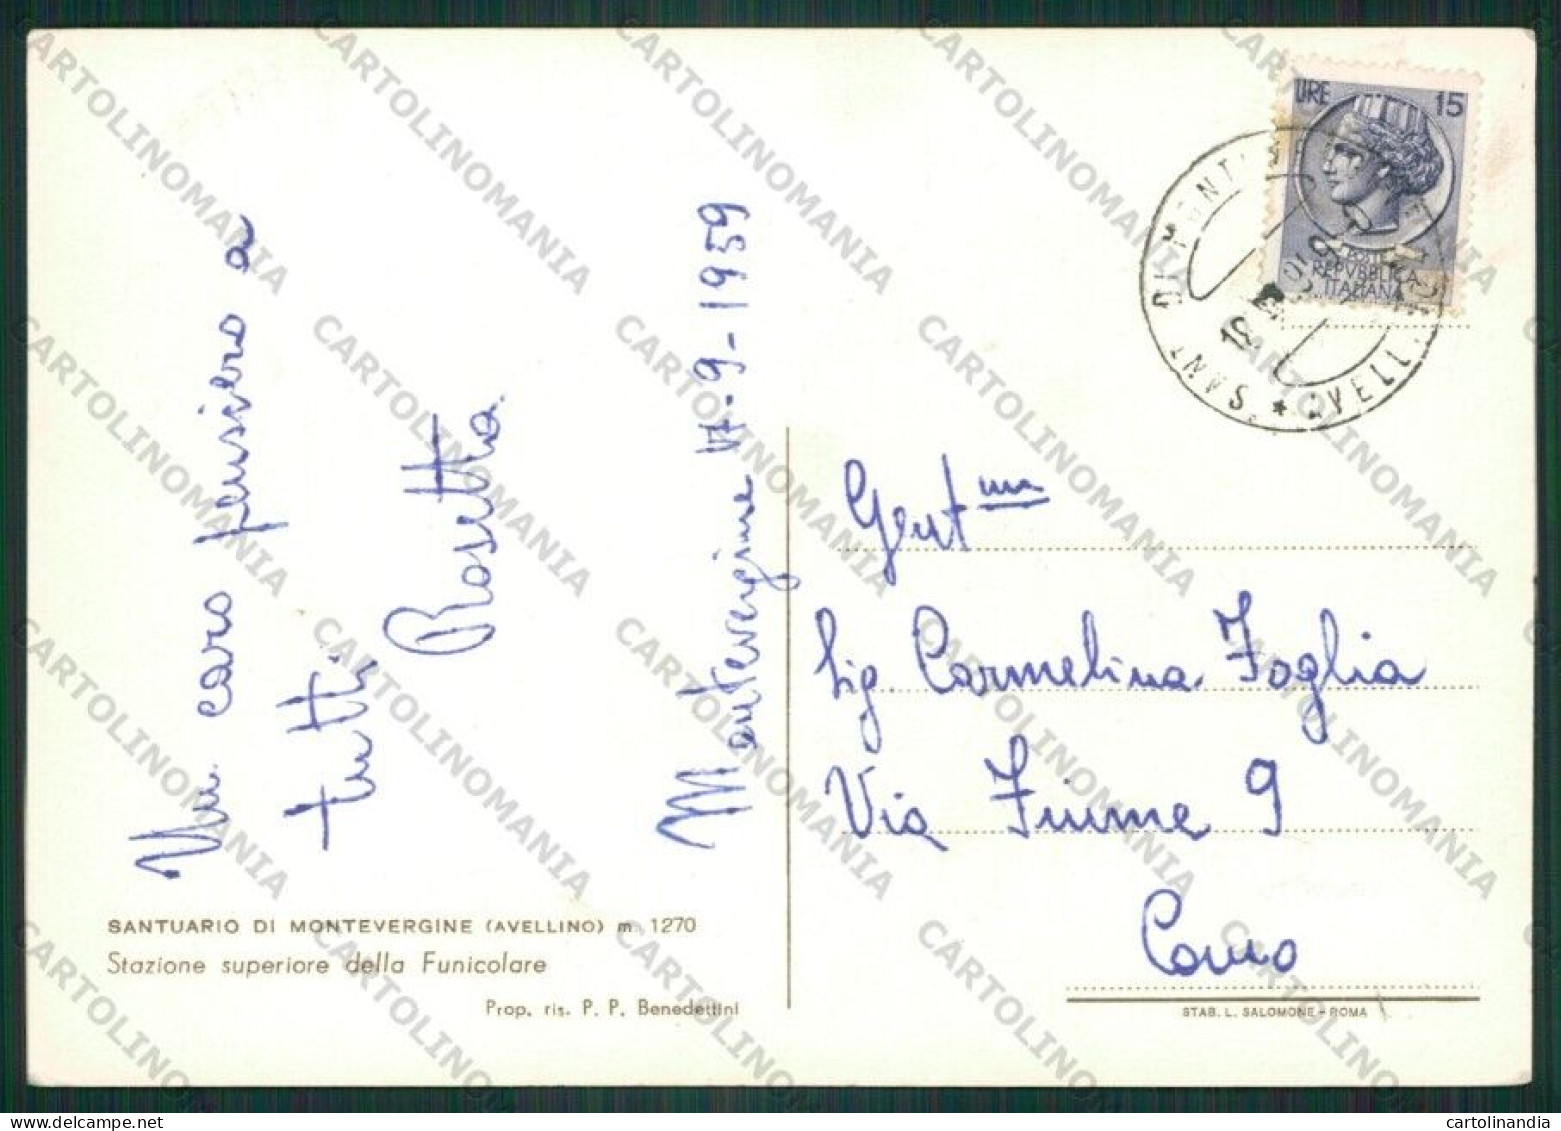 Un caro pensiero a
tutti.
Rosetta
Montevergine 17-9-1959
SANTUARIO DI MONTEVERGINE (AVELLINO) m. 1270
Stazione superiore della Funicolare
Prop. ris. P. P. Benedettini
LIRE 15
POSTE
REPVBBLICA
ITALIANA
Gent.ma
Sig. Carmelina Foglia
Via Fiume 9
Como
STAB. L. SALOMONE - ROMA
CARTOLINOMANIA
cartolinandia